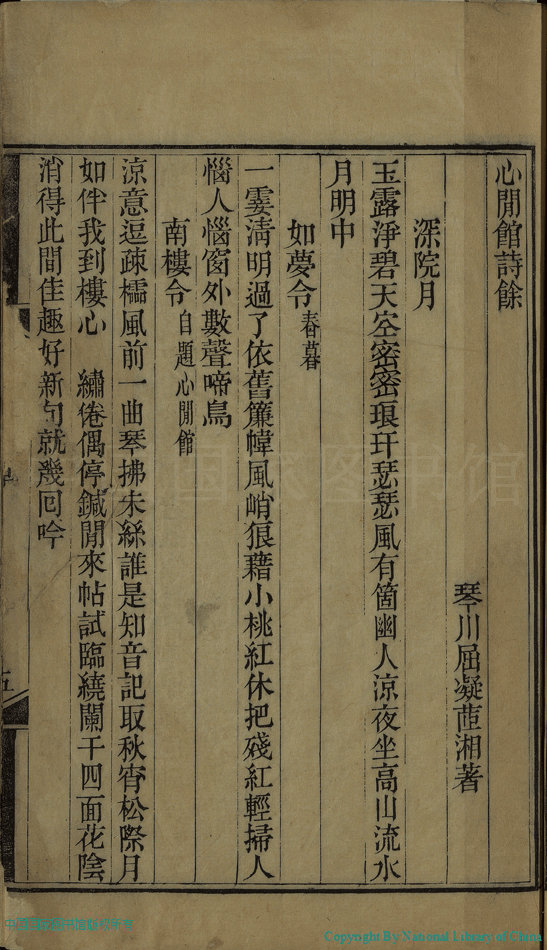 心閒館詩餘
琴川屈凝茝湘著
深院月
玉露淨碧天空密密琅玕瑟瑟風有箇幽人涼夜坐高山流水
月明中
如夢令春暮
一霎淸明過了依舊簾幃風峭狼藉小桃紅休把殘紅輕掃人
惱人惱窗外數聲啼鳥
南樓令自題心閒館
涼意逗疎櫺風前一曲琴拂朱絲誰是知音記取秋宵松際月
如伴我到樓心　繡倦偶停鍼閒來帖試臨繞闌干四面花陰
消得此間佳趣好新句就幾回吟
Copyright By National Library of China